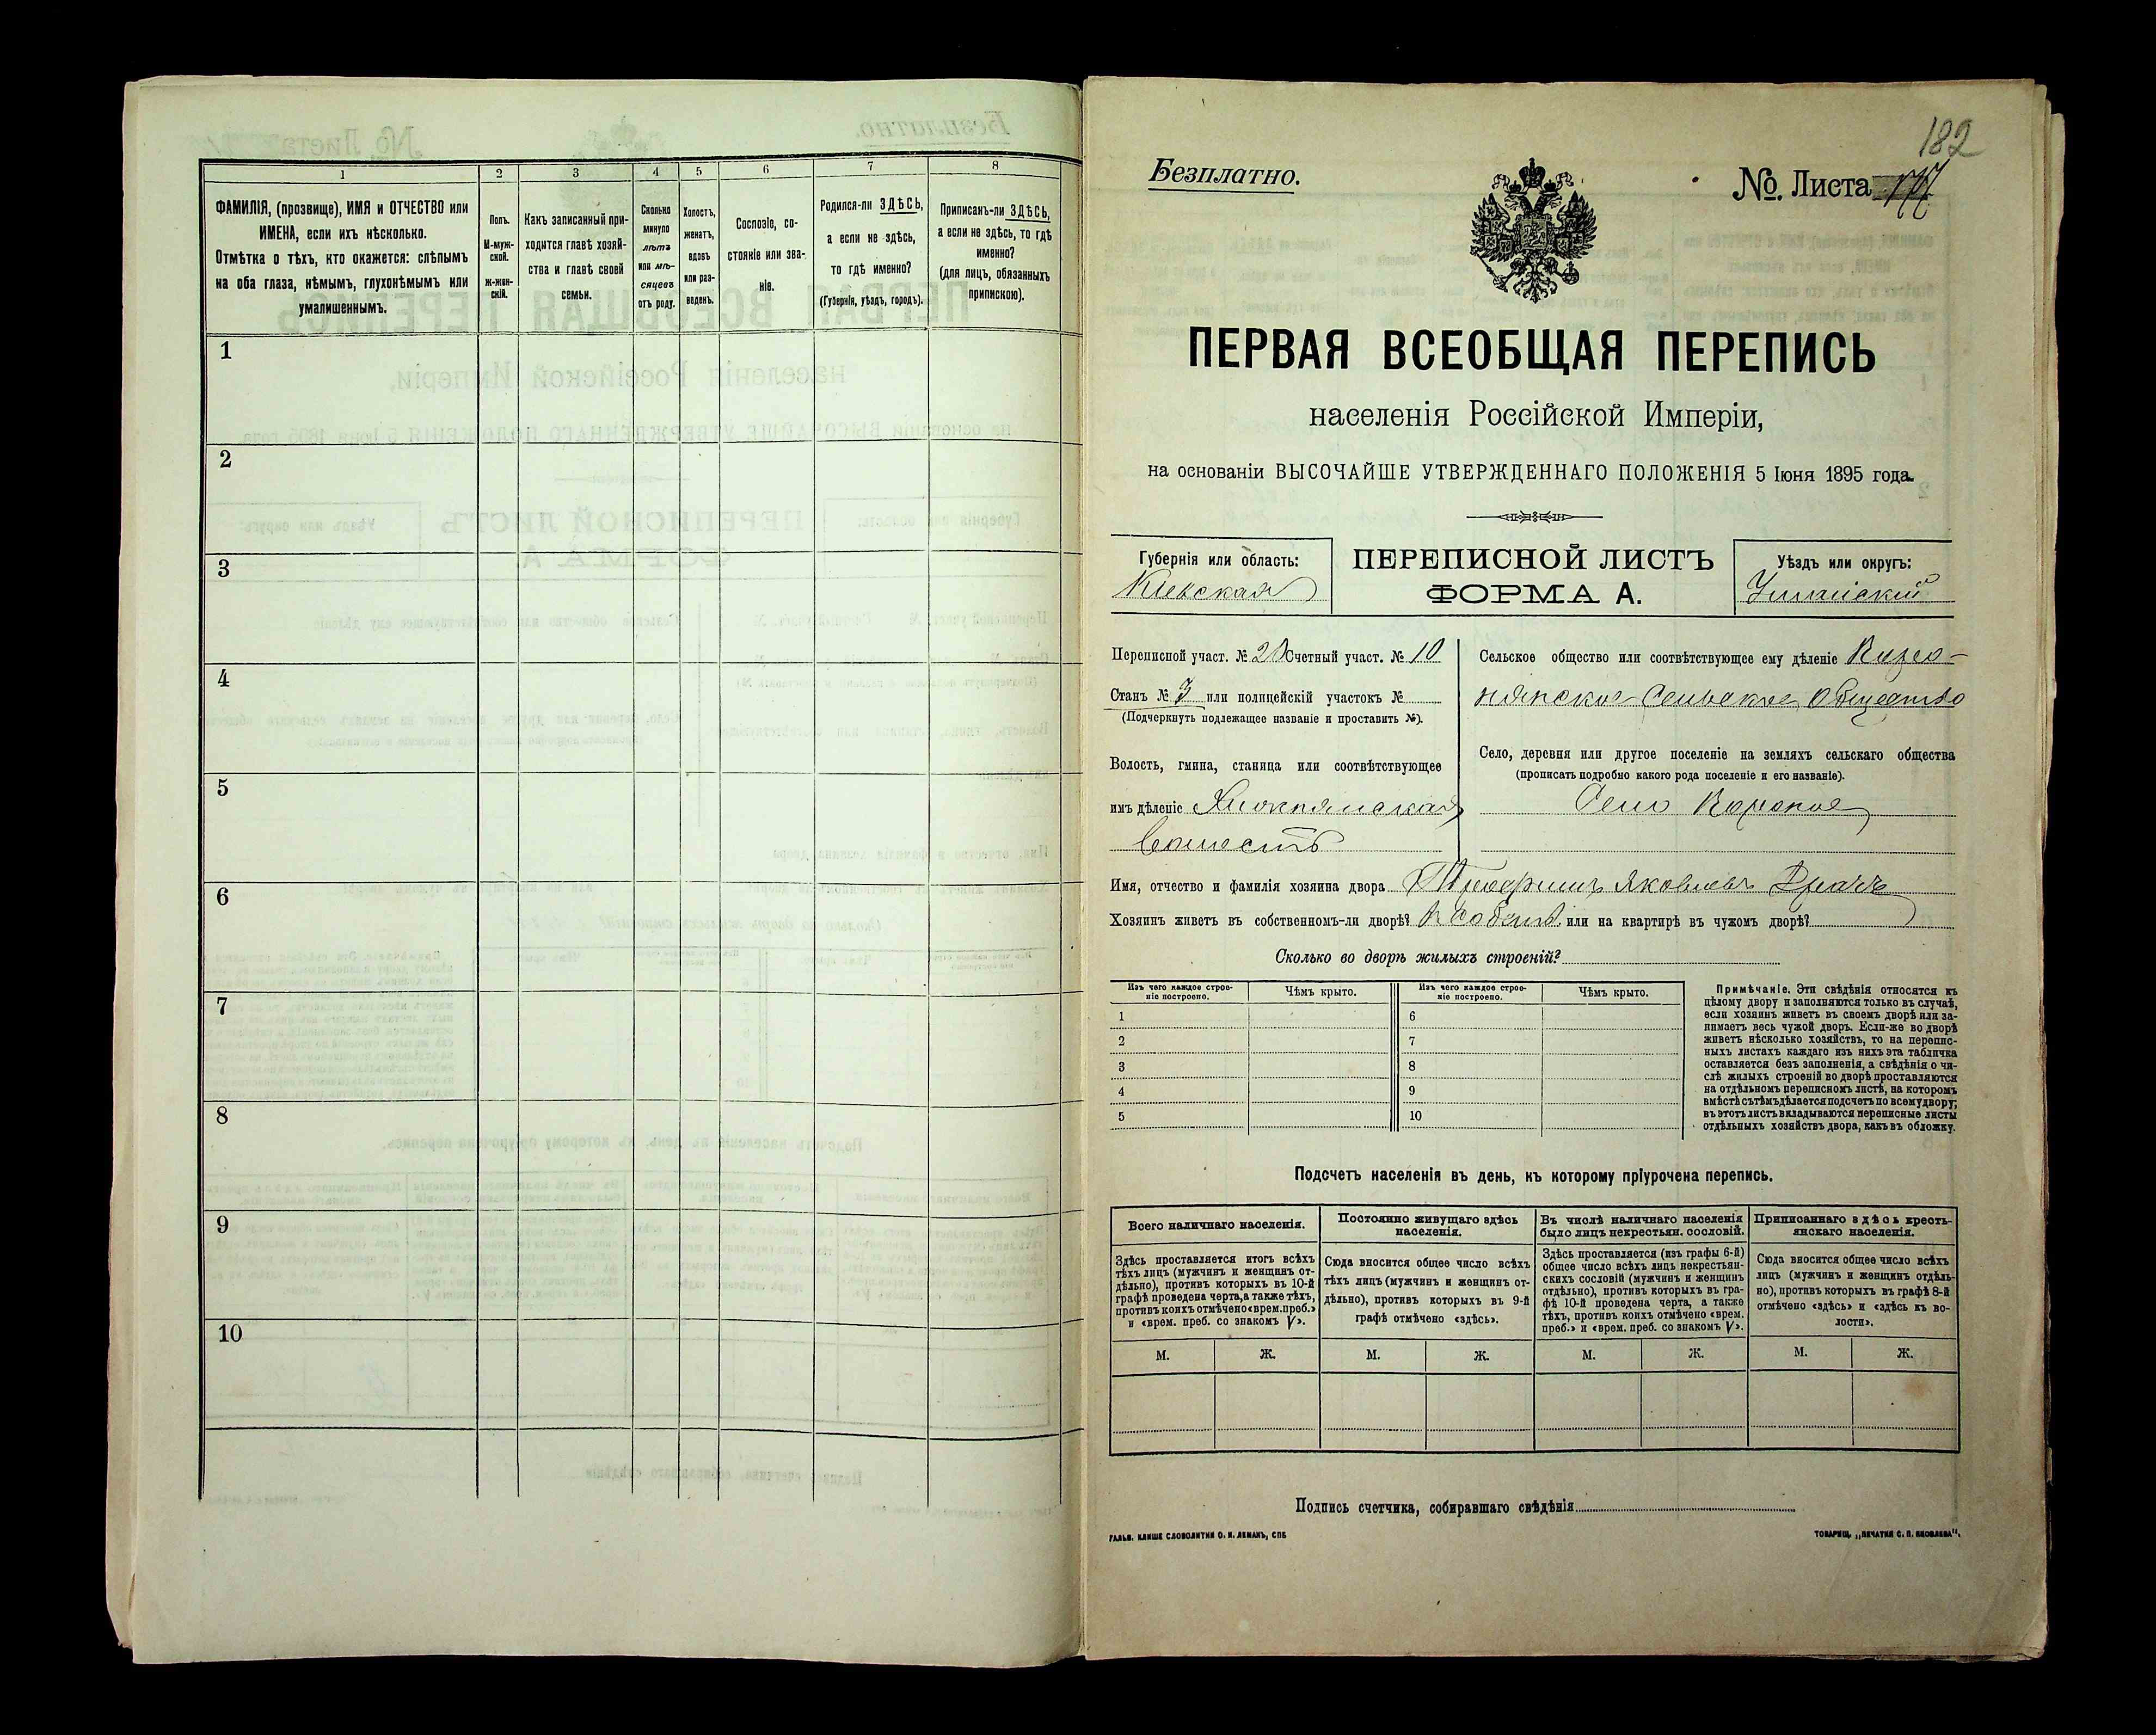 1
2
3
4
5
6
7
8
ФАМИЛІЯ, (прозвище), ИМЯ и ОТЧЕСТВО или
ИМЕНА, если ихъ нѣсколько.
Отмѣтка о тѣхъ, кто окажется: слѣпымъ
на оба глаза, нѣмымъ, глухонѣмымъ или
умалишеннымъ.
Полъ.
М-муж-
ской.
Ж-жен-
скій.
Какъ записанный при-
ходится главѣ хозяй-
ства и главѣ своей
семьи.
Сколько
минуло
лѣтъ
или мѣ-
сяцевъ
отъ роду.
Холостъ,
женатъ,
вдовъ
или раз-
веденъ.
Сословіе, со-
стояніе или зва-
ніе.
Родился-ли ЗДѢСЬ,
а если не здѣсь,
то гдѣ именно?
(Губернія, уѣздъ, городъ).
Приписанъ-ли ЗДѢСЬ,
а если не здѣсь, то гдѣ
именно?
(для лицъ, обязанныхъ
припискою).
1
2
3
4
5
6
7
8
9
10
182
Безплатно.
№. Листа
ПЕРВАЯ ВСЕОБЩАЯ ПЕРЕПИСЬ
населенія Россійской Имперіи,
на основаніи ВЫСОЧАЙШЕ УТВЕРЖДЕННАГО ПОЛОЖЕНІЯ 5 Іюня 1895 года.
Губернія или область:
Кіевская
ПЕРЕПИСНОЙ ЛИСТЪ
ФОРМА А.
Уѣздъ или округъ:
Уманскій
Переписной участ. № Счетный участ. № 10
Станъ № 3 или полицейскій участокъ №
(Подчеркнуть подлежащее названіе и проставить №).
Волость, гмина, станица или соотвѣтствующее
имъ дѣленіе
волость
Сельское общество или соотвѣтствующее ему дѣленіе
Сельское Общество
Село, деревня или другое поселеніе на земляхъ сельскаго общества
(прописать подробно какого рода поселеніе и его названіе).
Село
Имя, отчество и фамилія хозяина двора Яковлевъ
Хозяинъ живетъ въ собственномъ-ли дворѣ? или на квартирѣ въ чужомъ дворѣ?
Сколько во дворѣ жилыхъ строеній?
Изъ чего каждое строе-
ніе построено.
Чѣмъ крыто.
Изъ чего каждое строе-
ніе построено.
Чѣмъ крыто.
1
2
3
4
5
6
7
8
9
10
Примѣчаніе. Эти свѣдѣнія относятся къ
цѣлому двору и заполняются только въ случаѣ,
если хозяинъ живетъ въ своемъ дворѣ или за-
нимаетъ весь чужой дворъ. Если-же во дворѣ
живетъ нѣсколько хозяйствъ, то на перепис-
ныхъ листахъ каждаго изъ нихъ эта табличка
оставляется безъ заполненія, а свѣдѣнія о чи-
слѣ жилыхъ строеній во дворѣ проставляются
на отдѣльномъ переписномъ листѣ, на которомъ
вмѣстѣ съ тѣмъ дѣлается подсчетъ по всему двору;
въ этотъ листъ вкладываются переписные листы
отдѣльныхъ хозяйствъ двора, какъ въ обложку.
Подсчетъ населенія въ день, къ которому пріурочена перепись.
Всего наличнаго населенія.
Здѣсь проставляется итогъ всѣхъ
тѣхъ лицъ (мужчинъ и женщинъ от-
дѣльно), противъ которыхъ въ 10-й
графѣ проведена черта, а также тѣхъ,
противъ коихъ отмѣчено «врем. преб.»
и «врем. преб. со знакомъ V».
Постоянно живущаго здѣсь
населенія.
Сюда вносится общее число всѣхъ
тѣхъ лицъ (мужчинъ и женщинъ от-
дѣльно), противъ которыхъ въ 9-й
графѣ отмѣчено «здѣсь».
Въ числѣ наличнаго населенія
было лицъ некрестьян. сословій.
Здѣсь проставляется (изъ графы 6-й)
общее число всѣхъ лицъ некрестьян-
скихъ сословій (мужчинъ и женщинъ
отдѣльно), противъ которыхъ въ гра-
фѣ 10-й проведена черта, а также
тѣхъ, противъ коихъ отмѣчено «врем.
преб.» и «врем. преб. со знакомъ V».
Приписаннаго здѣсь кресть-
янскаго населенія.
Сюда вносится общее число всѣхъ
лицъ (мужчинъ и женщинъ отдѣль-
но), противъ которыхъ въ графѣ 8-й
отмѣчено «здѣсь» и «здѣсь къ во-
лости».
М. Ж. М. Ж. М. Ж. М. Ж.
Подпись счетчика, собиравшаго свѣдѣнія
ГАЛЬВ. КЛИШЕ СЛОВОЛИТНИ О. И. ЛЕМАНЪ, СПБ
ТОВАРИЩ. „ПЕЧАТНЯ С. П. ЯКОВЛЕВА“.